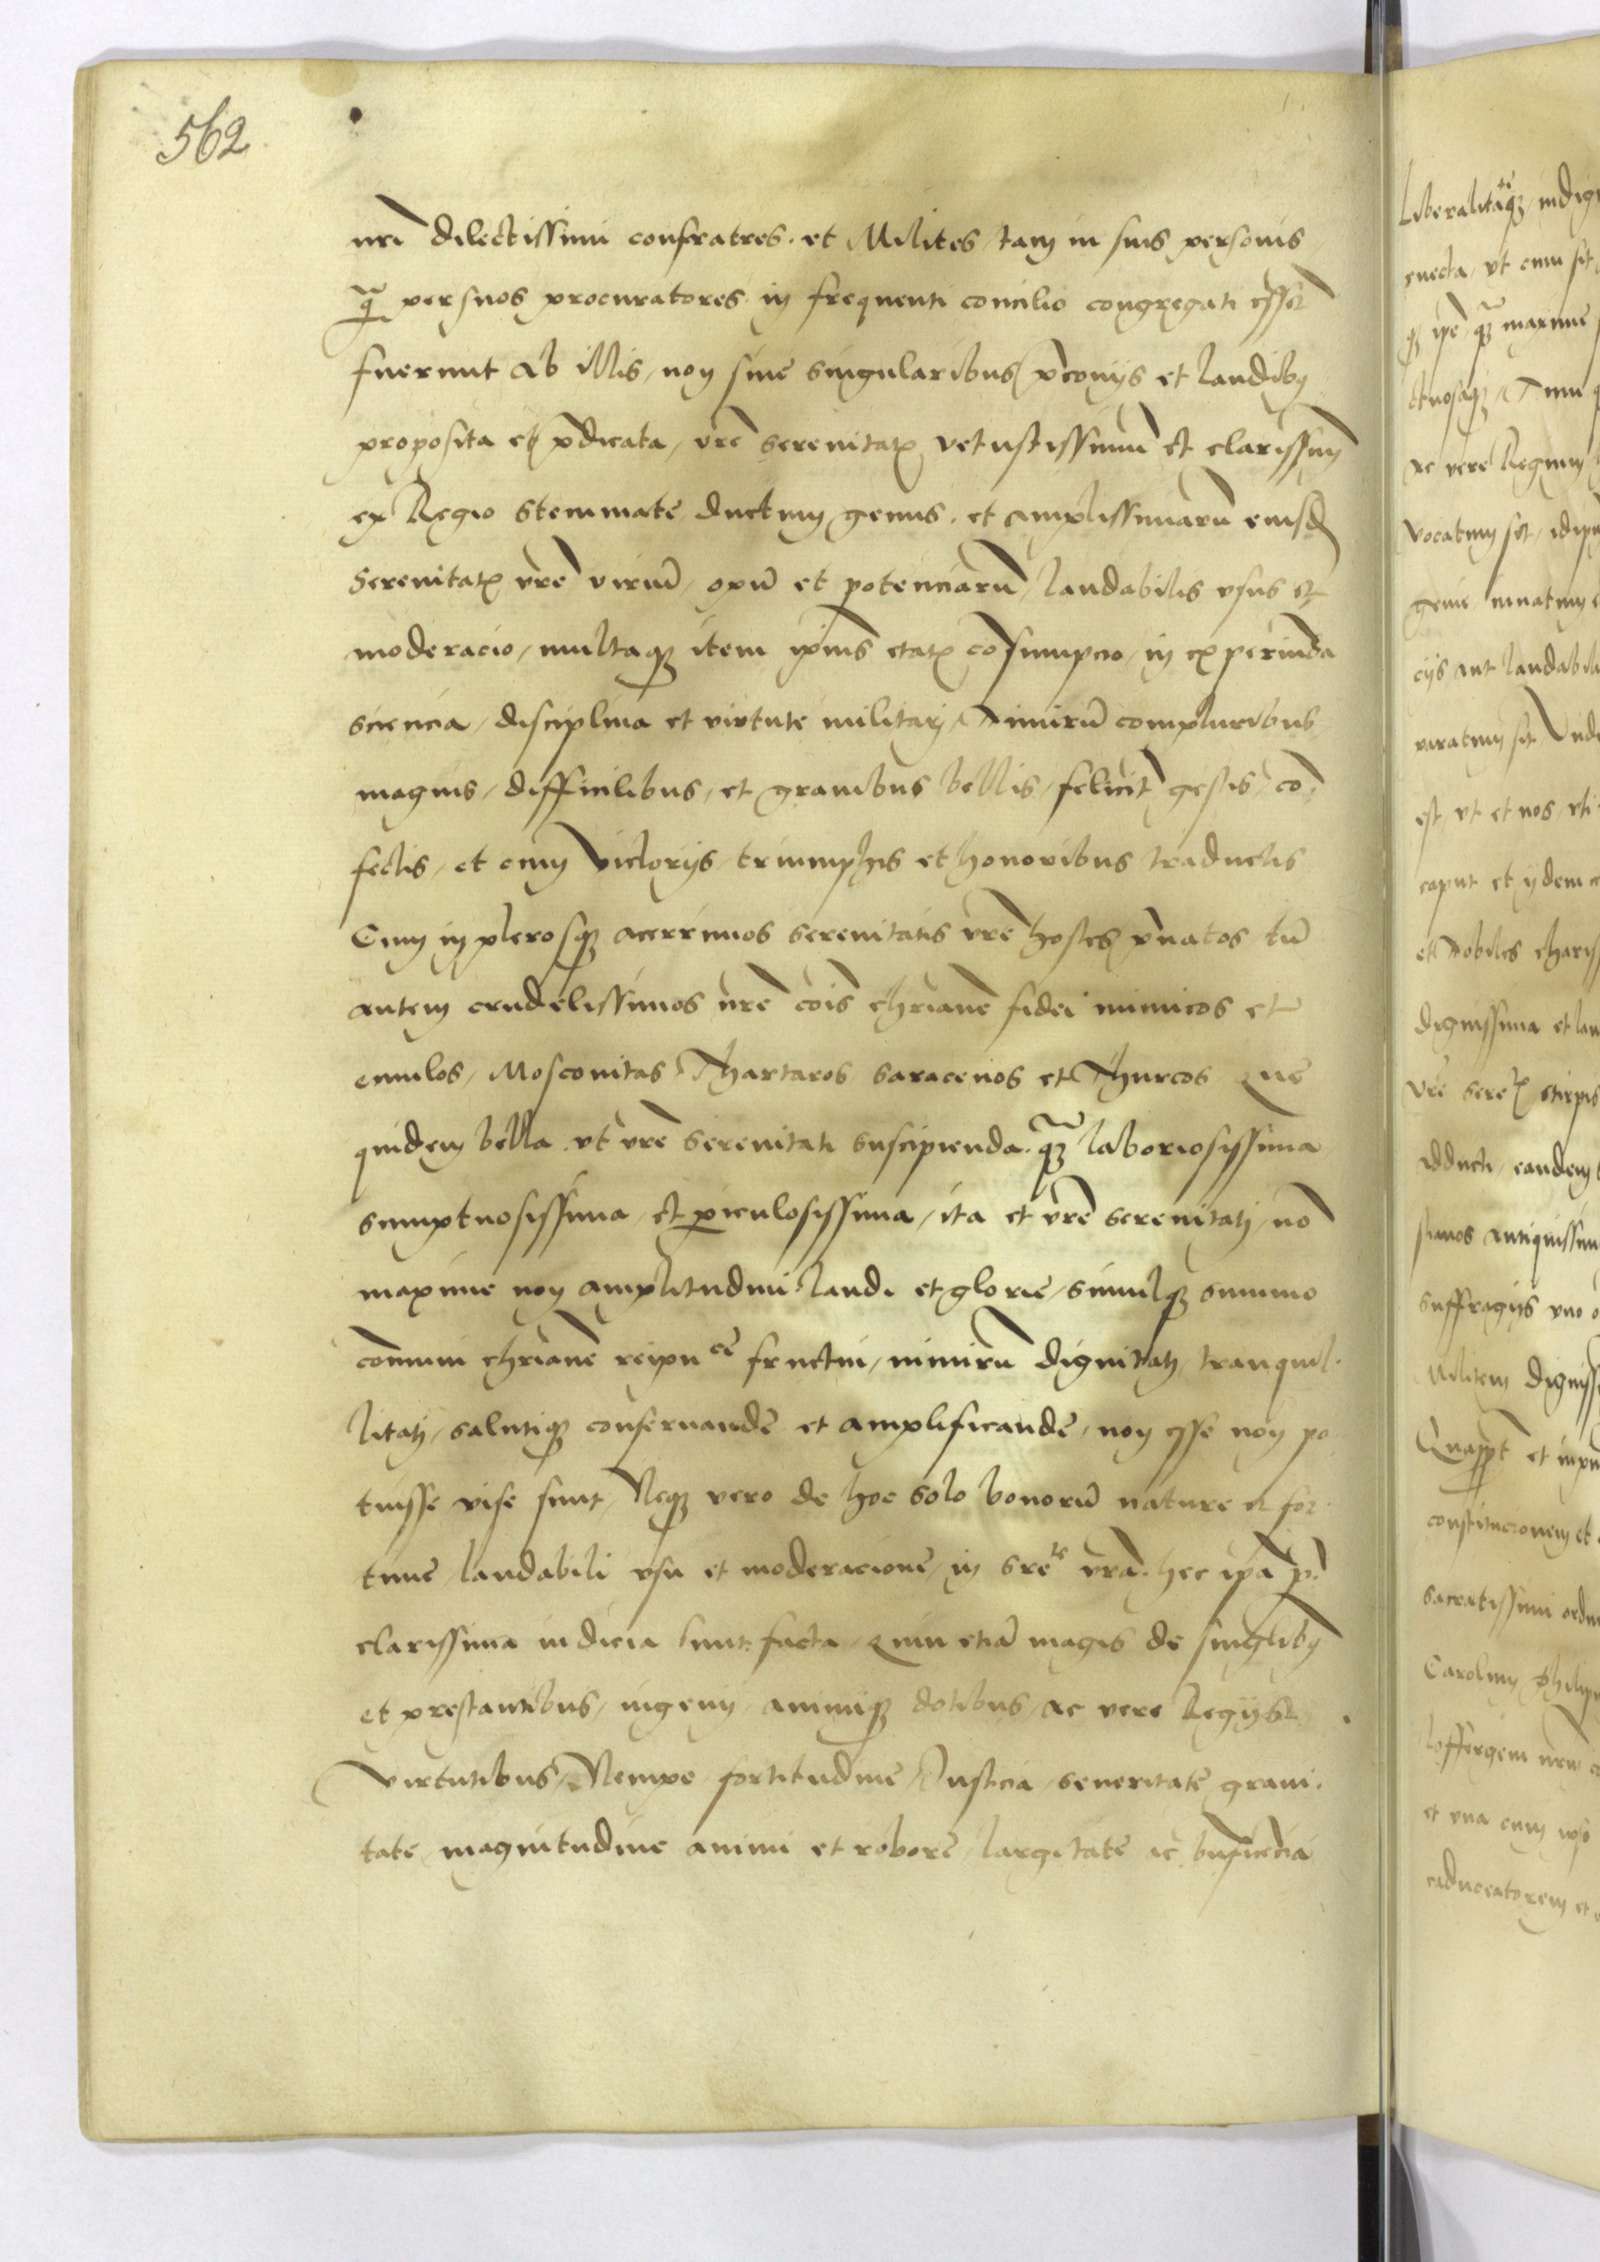 562
nr̄i dilectissimi confratres. et Milites, tam in suis personis
q̄ per suos procuratores in frequenti concilio congregati essēt
fuerunt Ab illis, non sine singularibus p̄conijs et laudibus
proposita et p̄dicata, vr̄e serenitatis vetustissimū et clarissimū
ex Regio stemmate ductum genus. et amplissimarū eiusd
Serenitatis vr̄e viriū, opū et potenciarū, laudabilis vsus et
moderacio, multaq; item ip̄ius etatis cōsumpcio, in experiunda
sciencia, disciplina et virtute militari, Nimirū compluribus
magnis, difficilibus, et grauibus bellis, felicit̄ gestis, cō
fectis, et cum victorijs, triumphis et honoribus traductis
Cum in plerosq; acerrimos serenitatis vr̄e hostes p̄uatos tū
autem crudelissimos nr̄e cōis chr̄iane fidei inimicos et
emulos, Moscouitas Thartaros saracenos et Thurcos Que
quidem bella vt vr̄e serenitati suscipienda. q̄ʒ laboriosissima
sumptuosissima, et periculosissima, ita et vr̄e serenitati, nō
maxime non amplitudini laudi et glorie, simulq; summo
communi chr̄iane reipu ce fructui, nimirū dignitati, tranquil-
litati, salutiq; conseruande et amplificande, non esse non po
tuisse vise sunt, Neq; vero de hoc solo bonorū nature et for
tune, laudabili vsu et moderacione, in Sre te vr̄a. hec ip̄a p̄
clarissima indicia sunt facta, Quin etiā magis de singlibus
et prestantibus, ingenij animiq; dotibus, ac vere Regijs
virtutibus, Nempe fortitudine, Justicia, seueritate graui.
tate, magnitudine animi et robore, largitate ac bn̄ficēcia
Liberalitateq; indig
euecta, vt cum sit
q; ip̄e q̄ʒ maxime
re vere Regium
vocatum sit, idip
cijs aut laudabili
paratum sit, Vnde
est, vt et nos, vti
caput et ijdem
et Nobiles chariss
dignissima et lau
Vr̄e sere stirpis
adducti, eandem
antiquissim
suffragijs vno
Militem digniss
Quāp̄pt et inpn
constitucionem et
sacratissimi ordin
Carolum Philip
et vna cum ip̄o